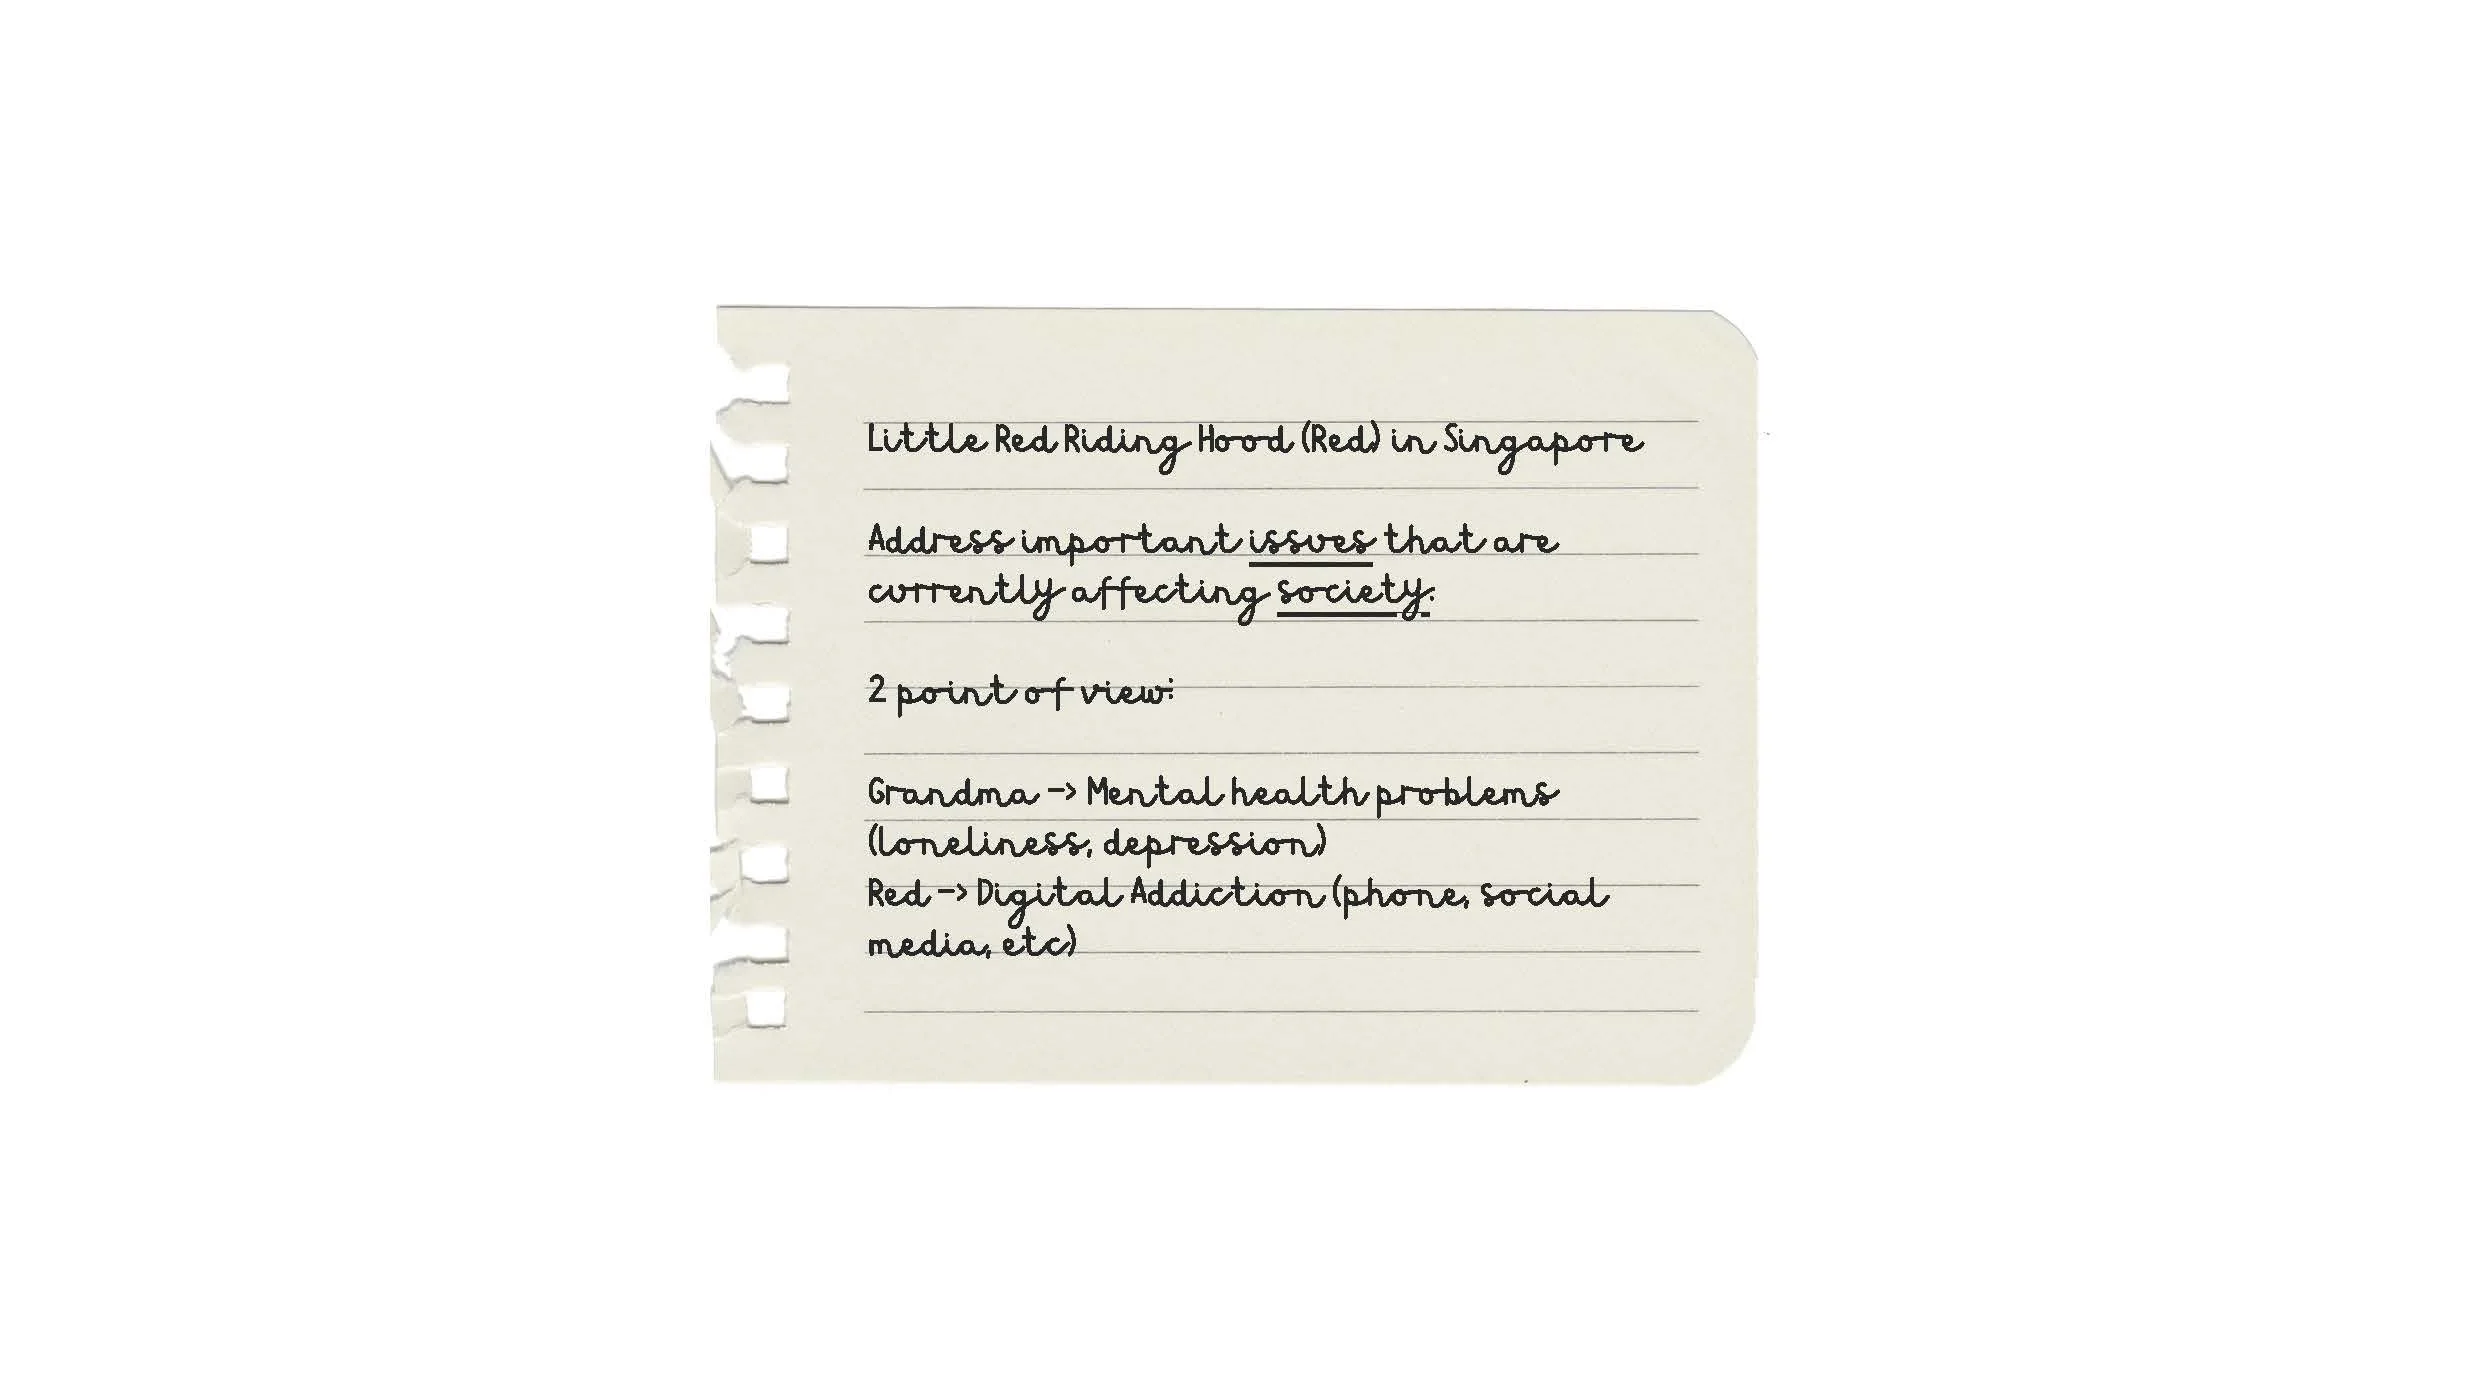 Little Red Riding Hood (Red) in Singapore
Address important issues that are
currently affecting society.
2 point of view:
Grandma -> Mental health problems
(loneliness, depression)
Red -> Digital Addiction (phone, social
media, etc)